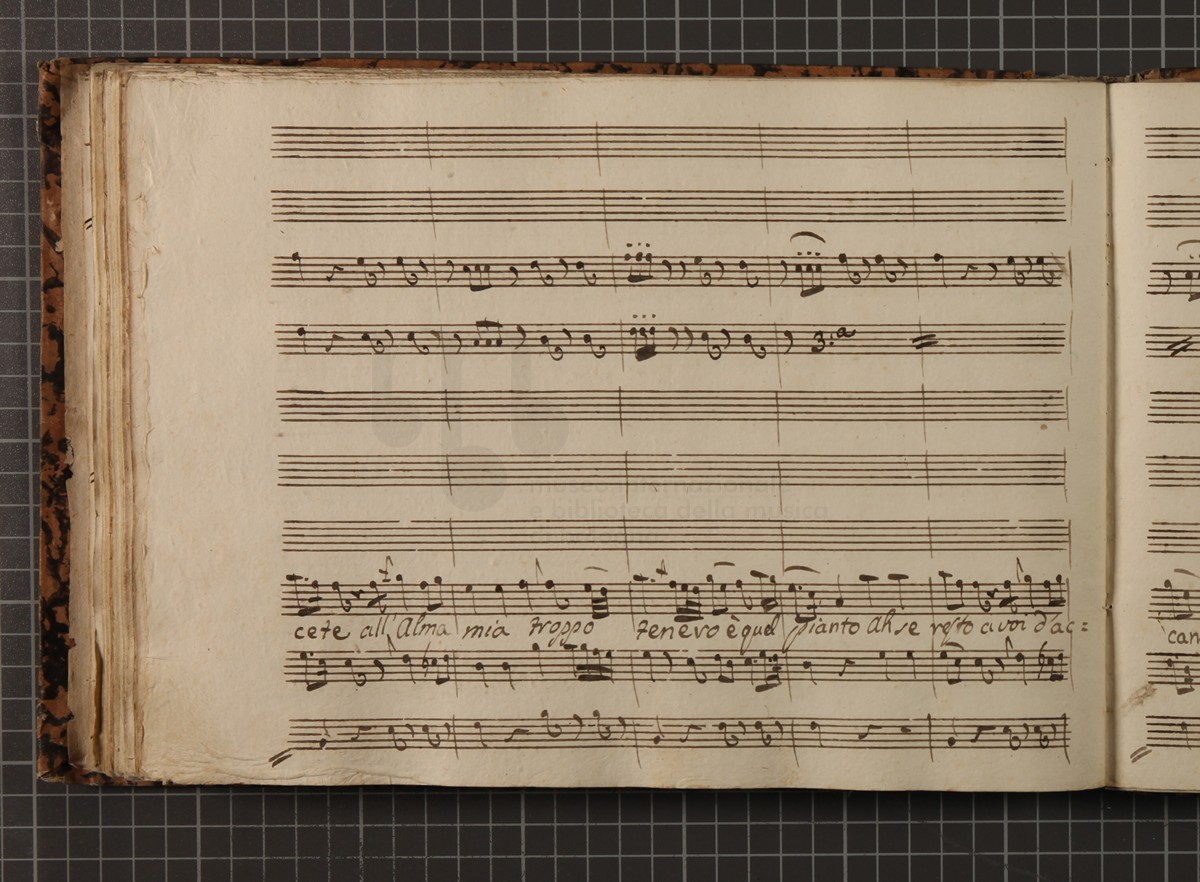 3.ª
museo internazionale
e biblioteca della musica
di bologna
cete all'Alma mia troppo tenero è quel pianto Ah se resto a voi d'ac=
can